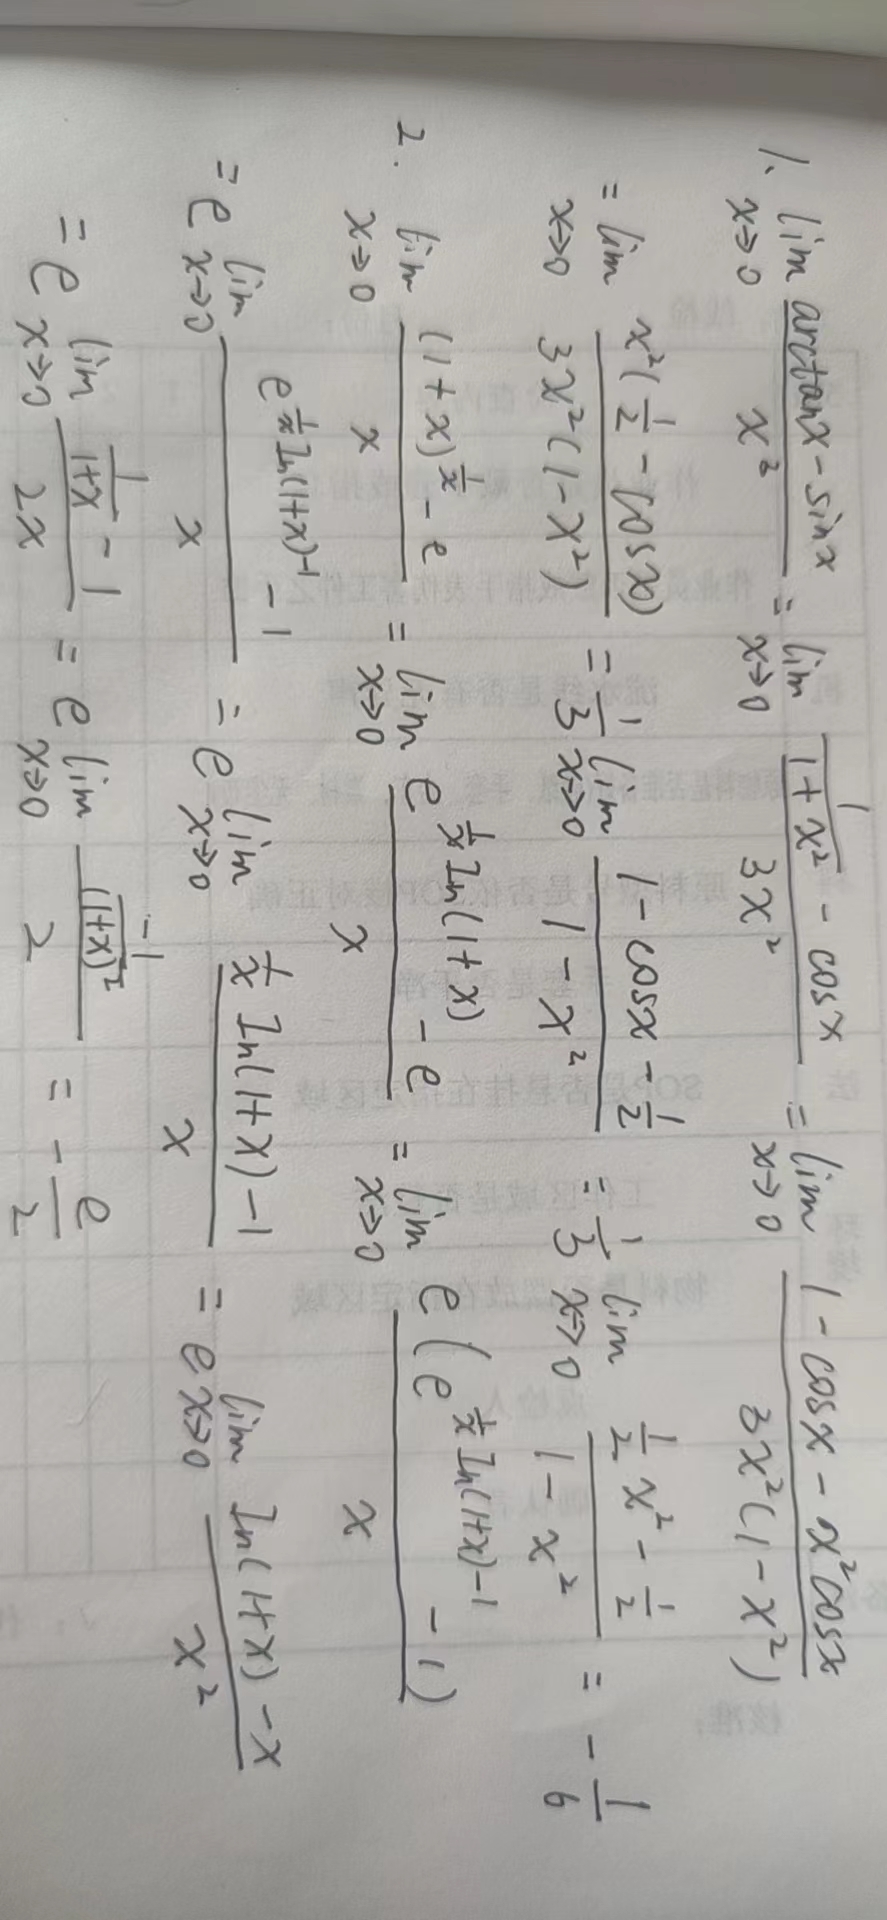 1. lim x→0 (arctanx - sinx)/x³ = lim x→0 (1/(1+x²) - cosx)/3x² = lim x→0 (1 - cosx - x²cosx)/(3x²(1-x²))
= lim x→0 x²(1/2 - cosx)/(3x²(1-x²)) = 1/3 lim x→0 (1 - cosx - 1/2)/(1-x²) = 1/3 lim x→0 (1/2 x² - 1/2)/(1-x²) = -1/6
2. lim x→0 ((1+x)^(1/x) - e)/x = lim x→0 (e^(1/x ln(1+x)) - e)/x = lim x→0 e(e^(1/x ln(1+x)-1) - 1)/x
= e lim x→0 (e^(1/x ln(1+x)-1) - 1)/x = e lim x→0 (1/x ln(1+x) - 1)/x = e lim x→0 (ln(1+x) - x)/x²
= e lim x→0 (1/(1+x) - 1)/2x = e lim x→0 (-1/(1+x)²)/2 = -e/2